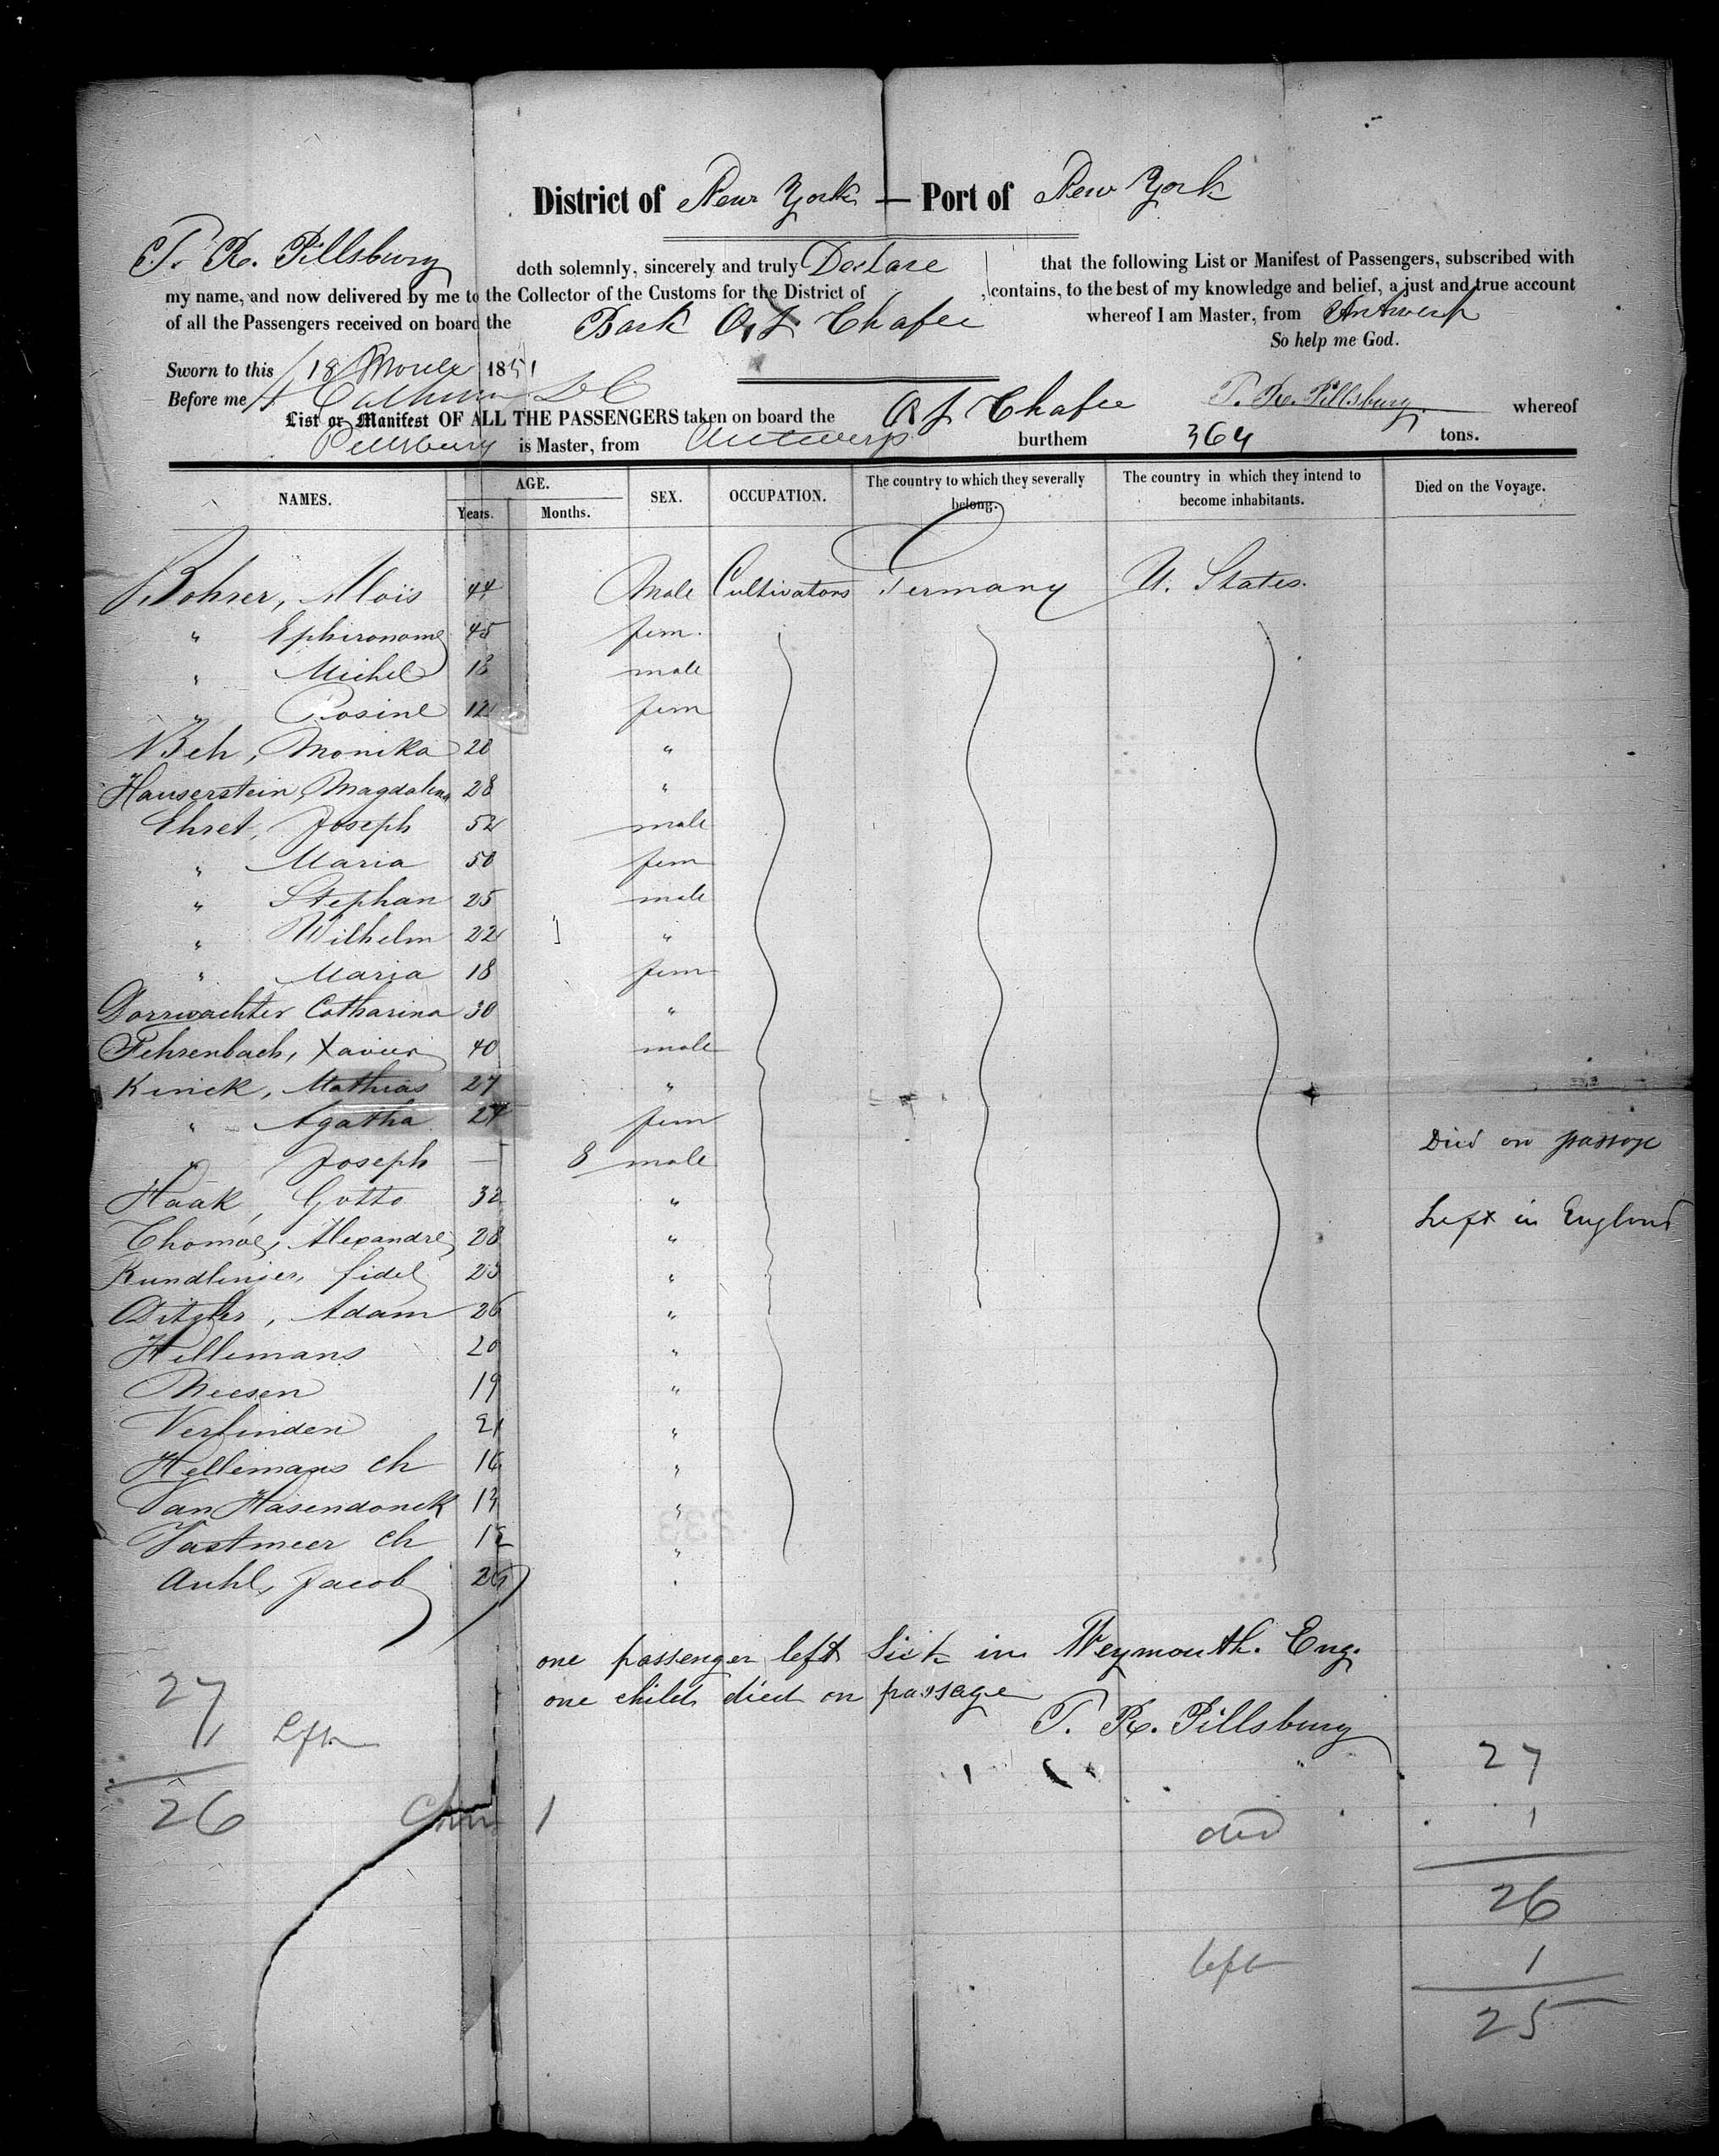 District of New York — Port of New York
T. R. Pillsbury doth solemnly, sincerely and truly Declare that the following List or Manifest of Passengers, subscribed with
my name, and now delivered by me to the Collector of the Customs for the District of , contains, to the best of my knowledge and belief, a just and true account
of all the Passengers received on board the Bark Chafee whereof I am Master, from Antwerp
So help me God.
Sworn to this 18 1851
Before me
T. R. Pillsbury
List or Manifest OF ALL THE PASSENGERS taken on board the Chafee whereof
Pillsbury is Master, from Antwerp burthem 364 tons.
NAMES. AGE. SEX. OCCUPATION. The country to which they severally belong. The country in which they intend to become inhabitants. Died on the Voyage.
Years. Months.
Bohrer, Alois 44 Male Cultivators Germany U. States.
" 45 fem.
" Michel male
" Rosine 12 fem
Beh, Monika 28 "
Hauserstein, Magdalena 28 "
Ehret, Joseph 52 male
" Maria 50 fem
" Stephan 25 male
" Wilhelm 22 "
" Maria 18 fem
Dorrwachter Catharina 30 "
Fehrenbach, Xavier 40 male
Kinck, Mathias 27 "
" Agatha 27 fem
" Joseph — 8 male Died on passage
Haak, Gotto 32 "
Thomae, Alexandre 28 " Left in England
fidel 23 "
Adam 26 "
Hellemans 20 "
Meesen 19 "
Verlinden 21 "
Hellemans ch 16 "
Van Hasendonck 13 "
Vastmeer ch "
Auhl, Jacob 26 "
one passenger left Sick in Weymouth. Eng.
one child died on passage
T. R. Pillsbury
27
1 Left
26
1
27
died 1
26
left 1
25